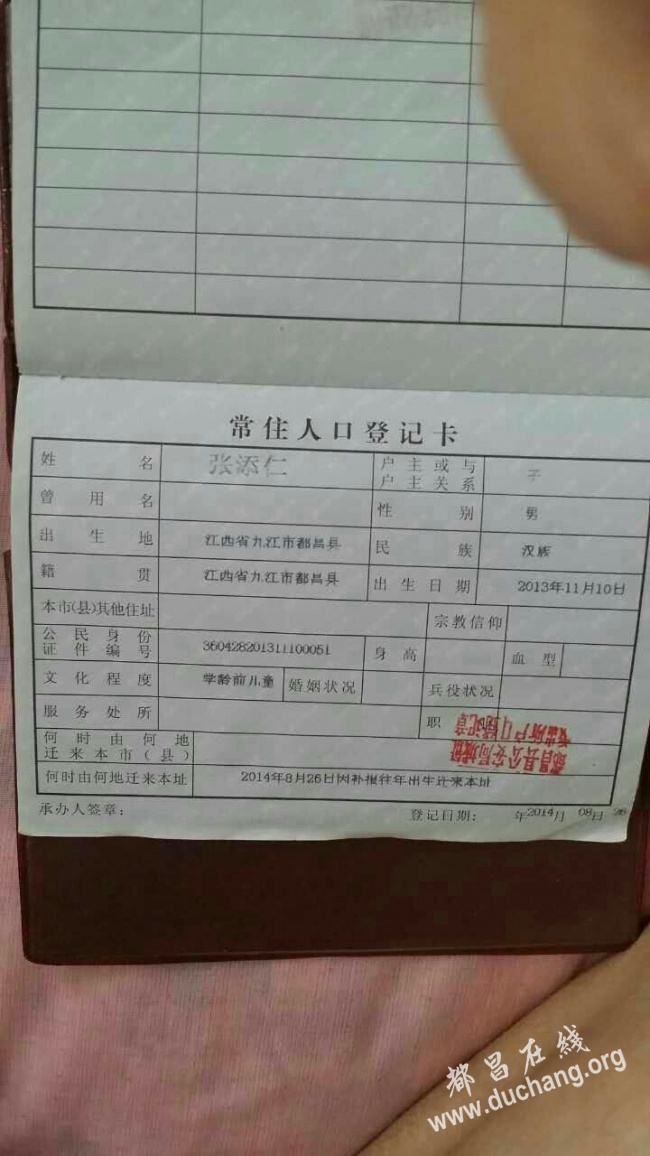 常住人口登记卡
姓名 张添仁 户主或与户主关系 子
曾用名 性别 男
出生地 江西省九江市都昌县 民族 汉族
籍贯 江西省九江市都昌县 出生日期 2013年11月10日
本市(县)其他住址 宗教信仰
公民身份证件编号 360428201311100051 身高 血型
文化程度 学龄前儿童 婚姻状况 兵役状况
服务处所 职
何时由何地迁来本市(县)
何时由何地迁来本址 2014年8月26日因补报往年出生迁来本址
承办人签章: 登记日期: 年2014月 08日 26
都昌在线
www.duchang.org